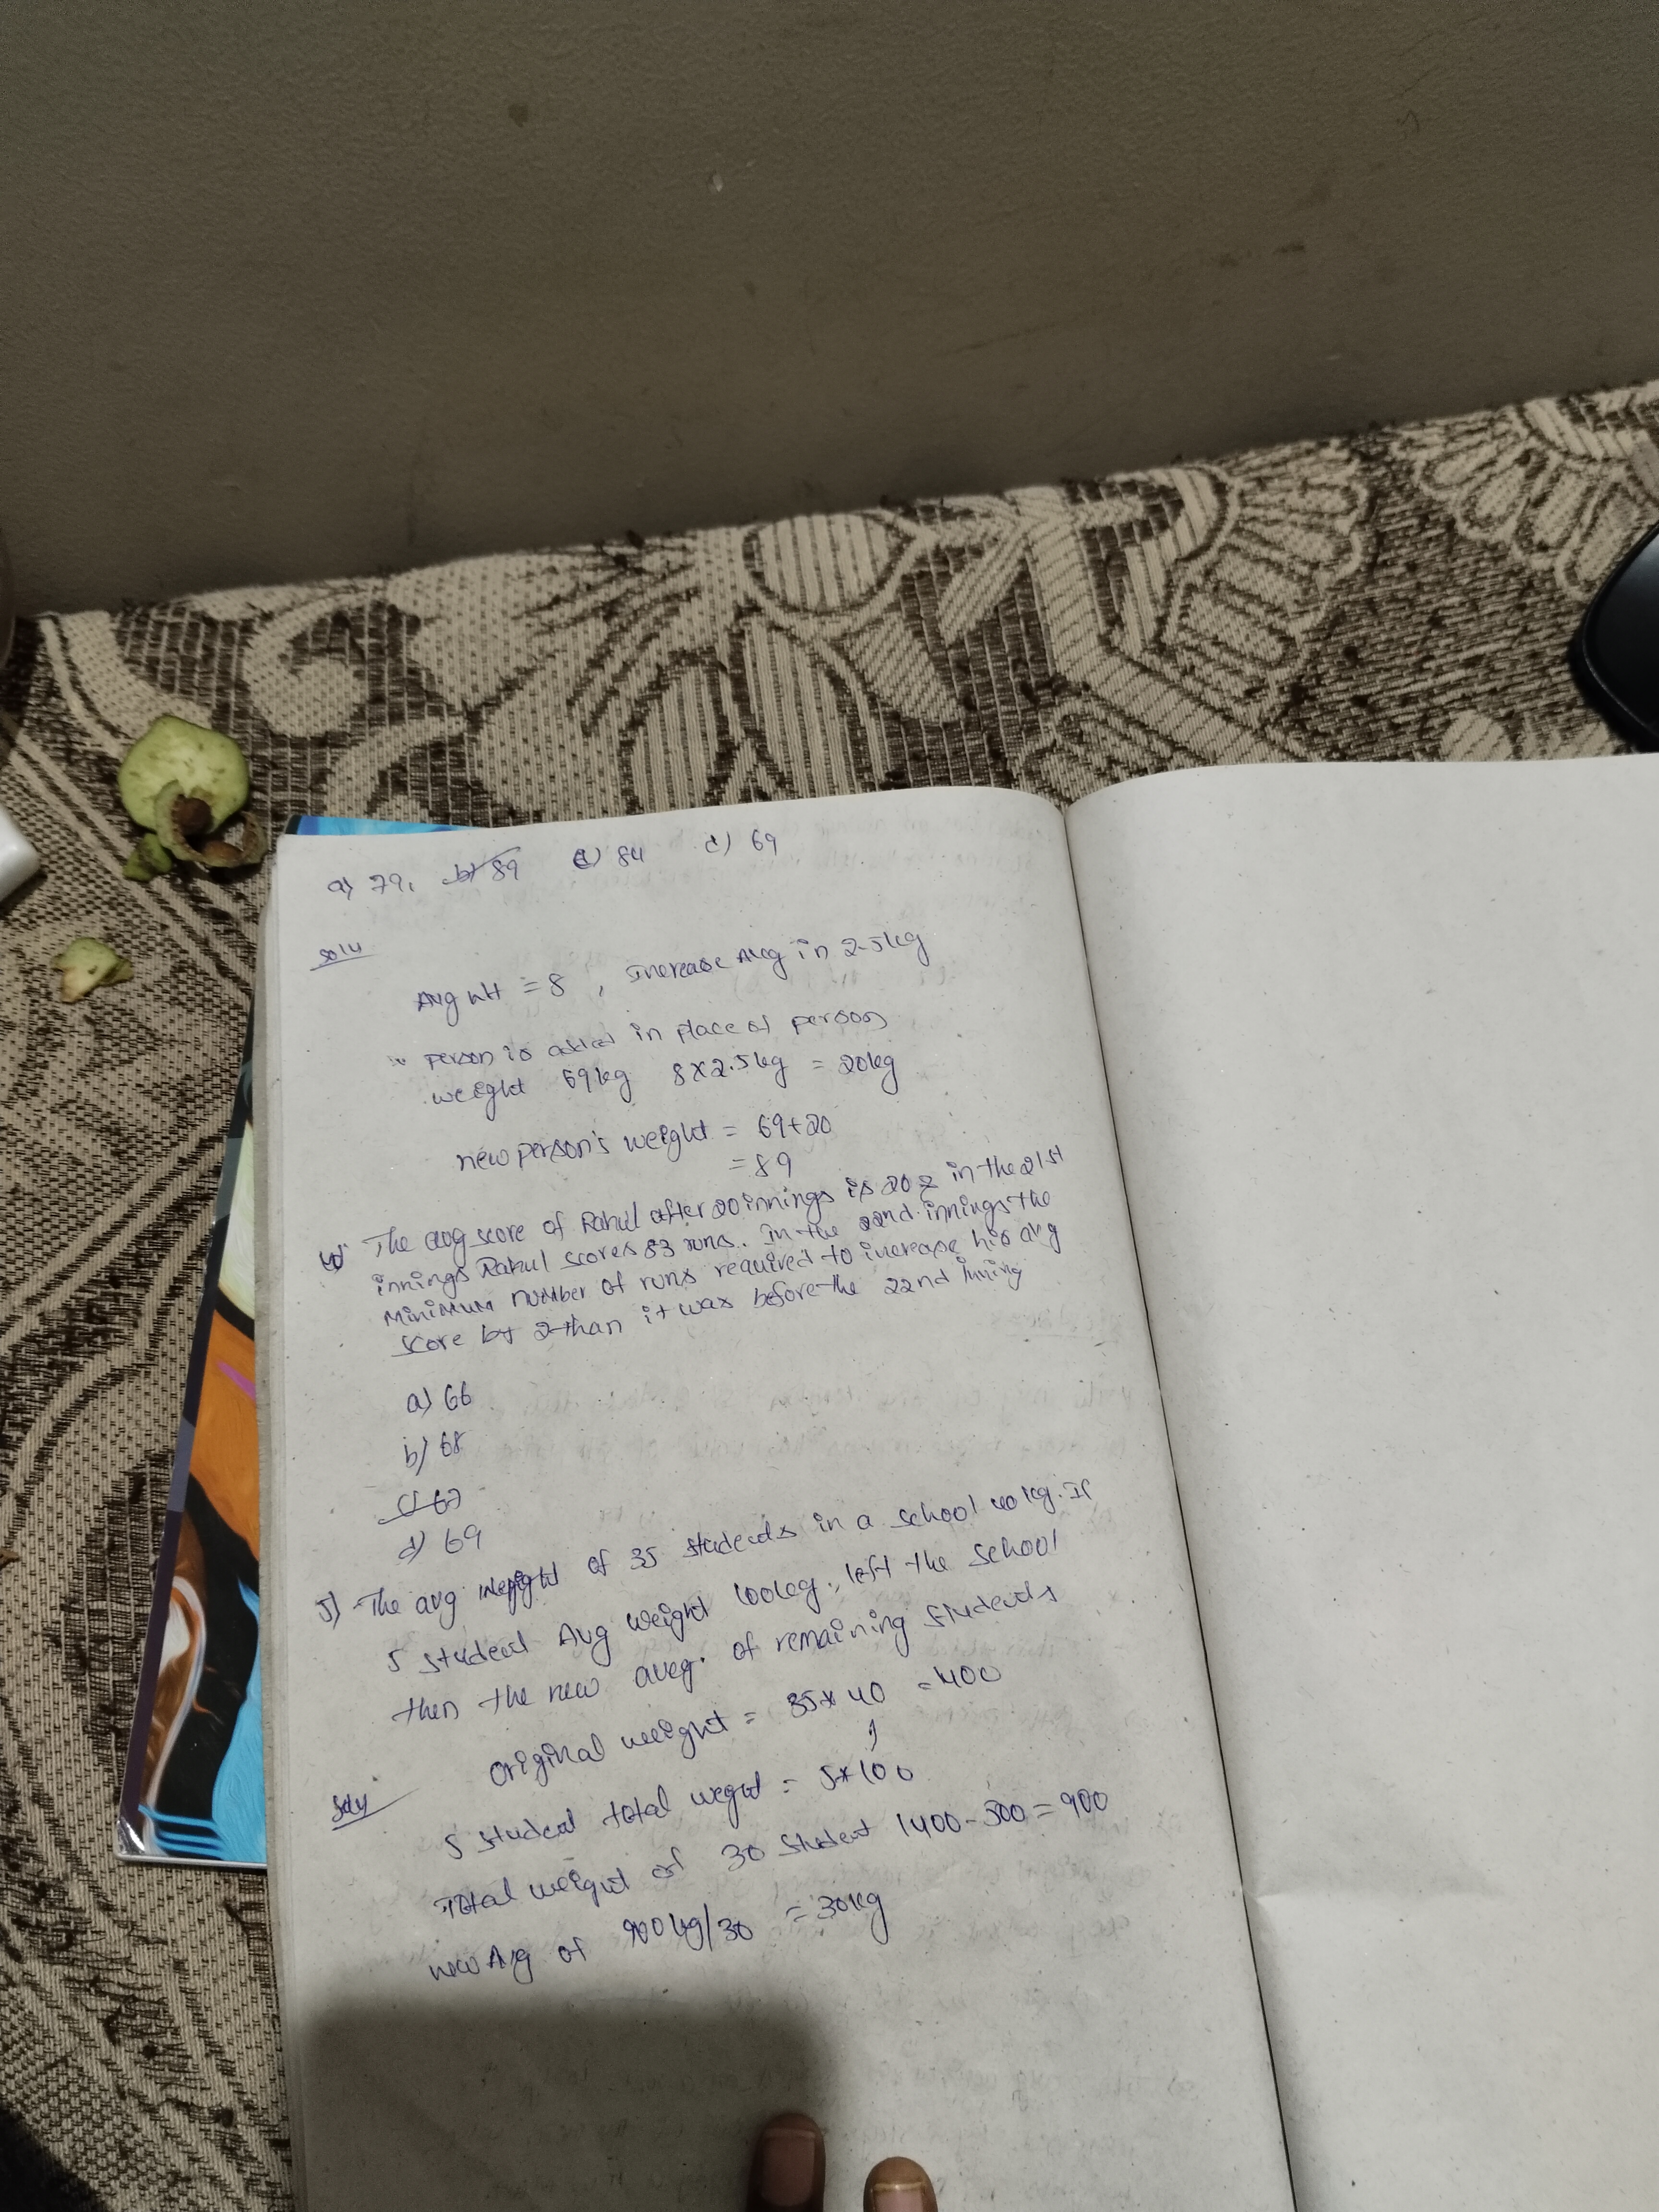 a) 79, b) 89 c) 84 d) 69
soln
Avg wt = 8, Increase Avg in 2.5kg
person is added in place of person
weight 69kg 8x2.5kg = 20kg
new person's weight = 69+20
= 89
4) The avg score of Rahul after 20 innings is 20 & in the 21st
innings Rahul scores 83 runs. In the 22nd innings the
minimum number of runs required to increase his avg
score by 2 than it was before the 22nd inning
a) 66
b) 68
c) 67
d) 69
5) The avg weight of 35 students in a school 40 kg. If
5 student Avg weight 100kg., left the school
then the new aveg. of remaining students
original weight = 35x40 = 400
soln
5 student total weght = 5*100
Total weight of 30 student 1400-500=900
new Avg of 900kg/30 = 30kg